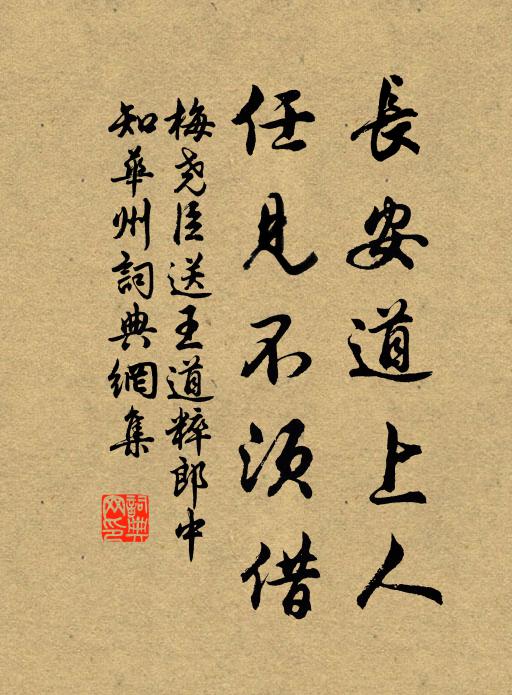 長安道上人
任見不須借
梅尧臣送王道粹郎中
知華州詞典網集
詞典
网印